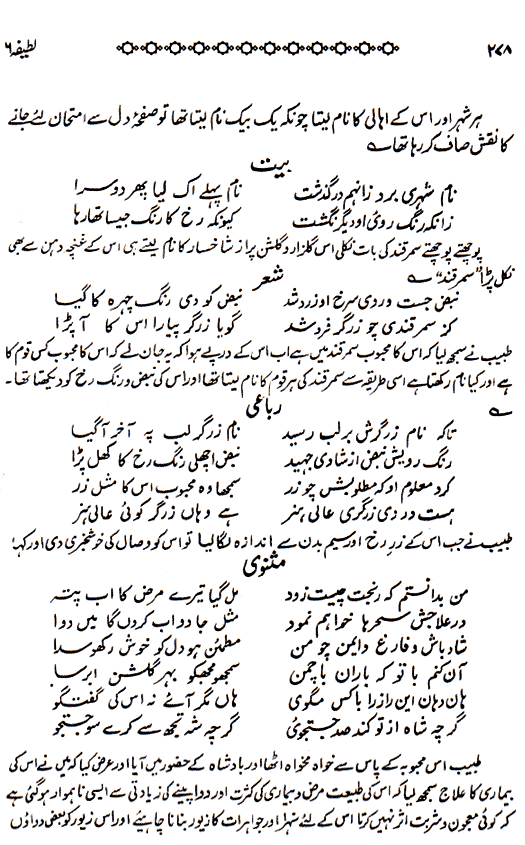 ۲۷۸ لطیفہ ۶
ہر شہر اور اس کے اہالی کا نام لیتا چونکہ یک بیک نام لیتا تھا تو صفحۂ دل سے امتحان لئے جانے
کا نقش صاف کر رہا تھا ؎
بیت
نام شہری برد زانہم درگذشت نام پہلے اک لیا پھر دوسرا
زانکہ رنگ روئی او دیگر نگشت کیونکہ رخ کا رنگ جیسا تھا رہا
پوچھتے پوچھتے سمرقند کی بات نکلی اس گلزار و گلشن پر از شاخسار کا نام لیتے ہی اس کے غنچہ دہن سے بھی
نکل پڑا "سمرقند" ؎
شعر
نبض جست و ردی سرخ او زرد شد نبض کو دی رنگ چہرہ کا گیا
کز سمرقندی چو زرگر فرد شد گویا زرگر پیارا اس کا آ پڑا
طبیب نے سمجھ لیا کہ اس کا محبوب سمرقند میں ہے اب اس کے درپے ہوا کہ یہ جان لے کہ اس کا محبوب کس قوم کا
ہے اور کیا نام رکھتا ہے اسی طریقہ سے سمرقند کی ہر قوم کا نام لیتا تھا اور اس کی نبض و رنگ رخ کو دیکھتا تھا۔
؎ رباعی
تا کہ نام زرگرش بر لب رسید نام زرگر لب پہ آخر آ گیا
رنگ رویش نبض از شادی جہید نبض اچھلی رنگ رخ کا کھل پڑا
کرد معلوم او کہ مطلوبش چو زر سمجھا وہ محبوب اس کا مثل زر
ہست در دی زرگری عالی ہنر ہے وہاں زرگر کوئی عالی ہنر
طبیب نے جب اس کے زر رخ اور سیم بدن سے اندازہ لگا لیا تو اس کو وصال کی خوشخبری دی اور کہا
مثنوی
من بدانستم کہ رنجت چیست زود مل گیا تیرے مرض کا اب پتہ
در علاجش سحرہا خواہم نمود مثل جادو اب کروں گا میں دوا
شاد باش و فارغ دایمن چو من مطمئن ہو دل کو خوش رکھو سدا
آن کنم با تو کہ باران با چمن سمجھو مجھکو بہر گلشن ابر سا
ہان دہان این راز را با کس مگوی ہاں مگر آنے نہ اس کی گفتگو
گرچہ شاہ از تو کند صد جستجوی گرچہ شہ تجھ سے کرے سو جستجو
طبیب اس محبوبہ کے پاس سے خواہ مخواہ اٹھا اور بادشاہ کے حضور میں آیا اور عرض کیا کہ میں نے اس کی
بیماری کا علاج سمجھ لیا کہ اس کی طبیعت مرض و بیماری کی کثرت اور دوا پینے کی زیادتی سے ایسی ناہموار ہو گئی ہے
کہ کوئی معجون و شربت اثر نہیں کرتا اس کے لئے سنہرا اور جواہرات کا زیور بنانا چاہئیے اور اس زیور کو بعض دداؤں